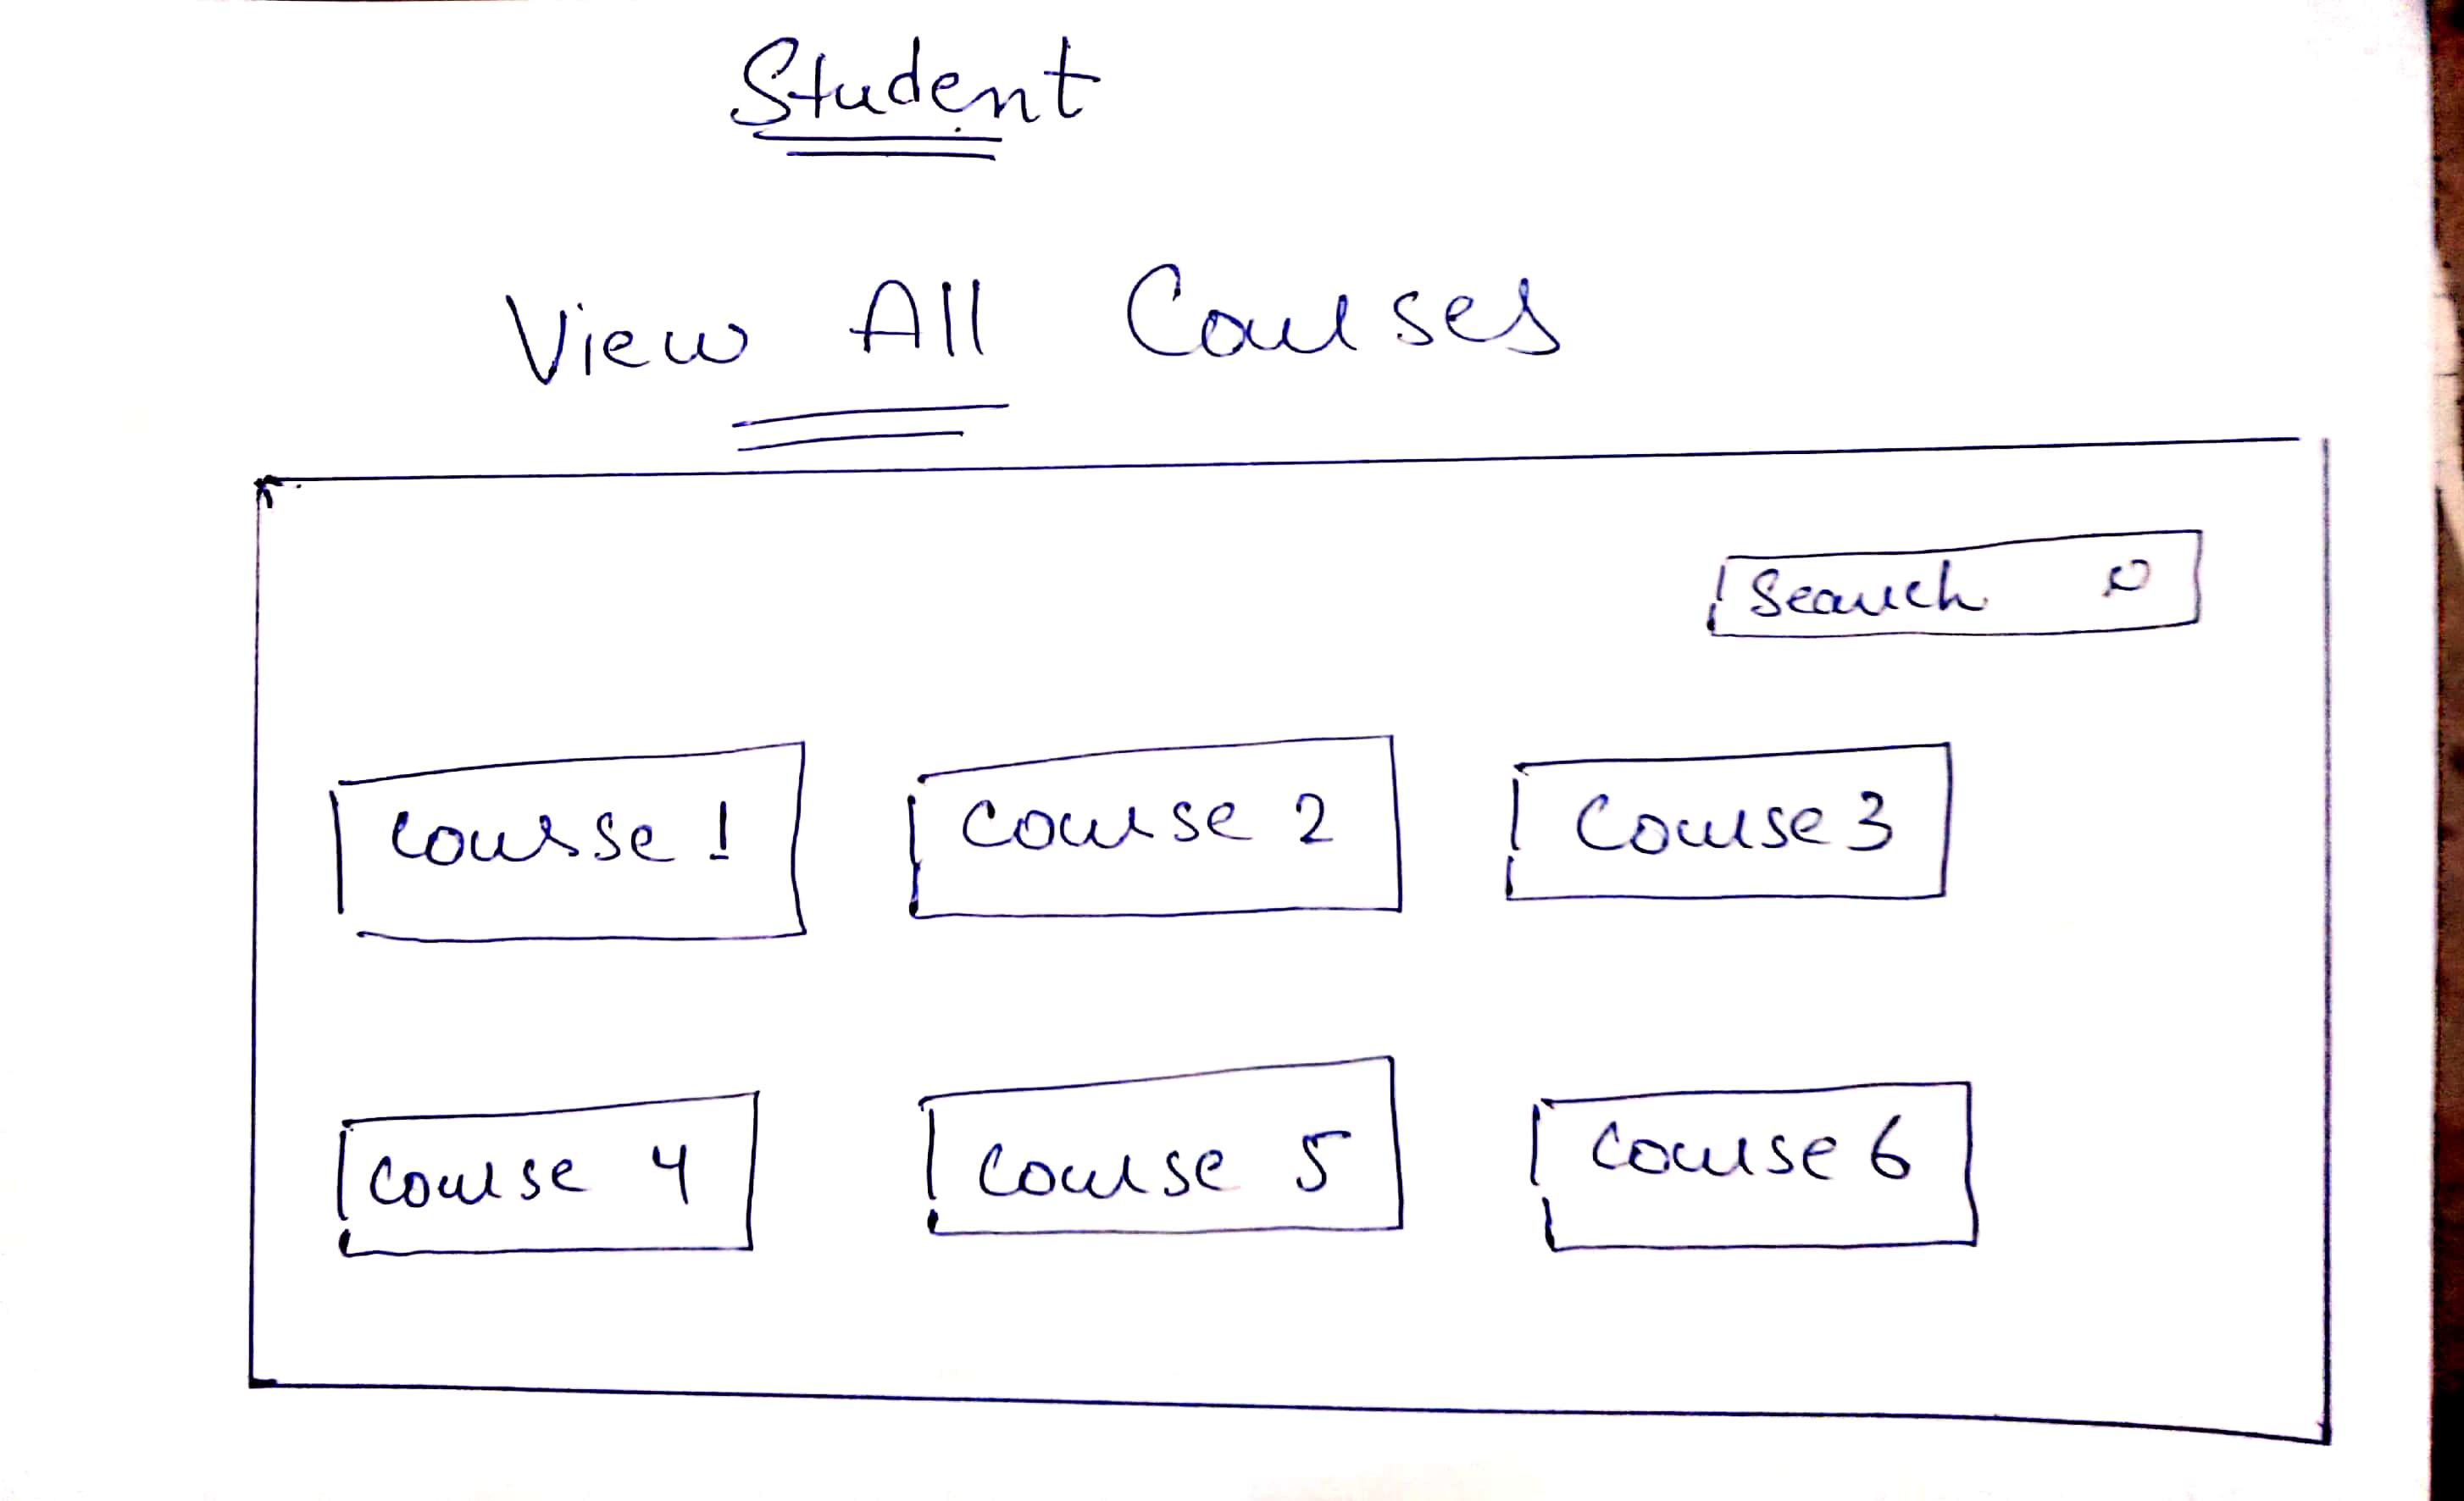 Student
View All Courses
Search
Course 1
Course 2
Course 3
Course 4
Course 5
Course 6